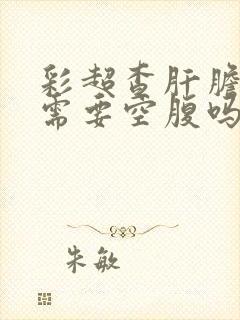 彩超查肝胆
需要空腹吗
朱敏